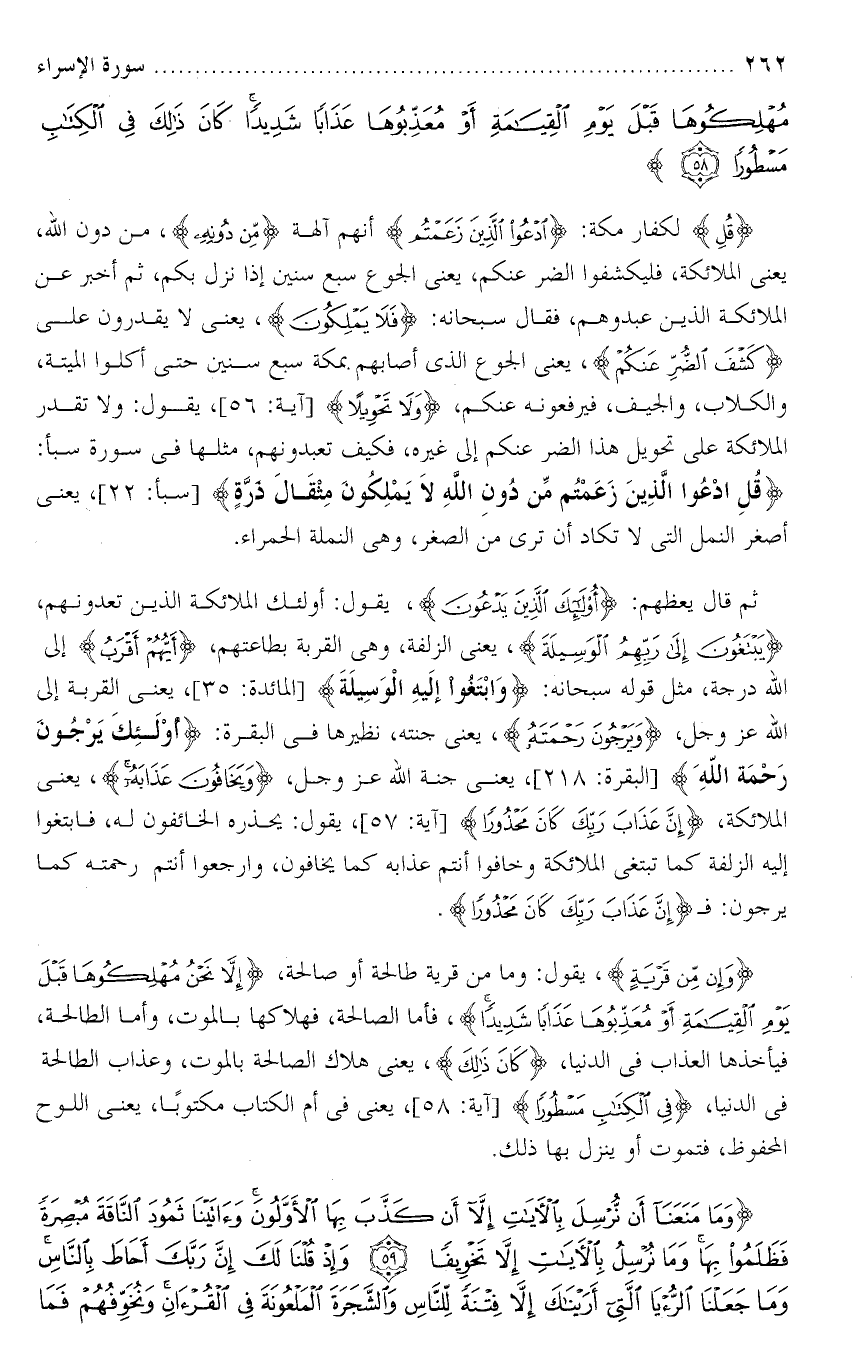 ٢٦٢ ........................................................................ سورة الإسراء
مُهْلِكُوهَا قَبْلَ يَوْمِ ٱلْقِيَـٰمَةِ أَوْ مُعَذِّبُوهَا عَذَابًا شَدِيدًا ۚ كَانَ ذَٰلِكَ فِى ٱلْكِتَـٰبِ
مَسْطُورًا ﴿٥٨﴾ ﴾
﴿قُلِ﴾ لكفار مكة: ﴿ٱدْعُوا۟ ٱلَّذِينَ زَعَمْتُم﴾ أنهم آلهة ﴿مِّن دُونِهِۦ﴾، من دون الله،
يعنى الملائكة، فليكشفوا الضر عنكم، يعنى الجوع سبع سنين إذا نزل بكم، ثم أخبر عن
الملائكة الذين عبدوهم، فقال سبحانه: ﴿فَلَا يَمْلِكُونَ﴾، يعنى لا يقدرون على
﴿كَشْفَ ٱلضُّرِّ عَنكُمْ﴾، يعنى الجوع الذى أصابهم بمكة سبع سنين حتى أكلوا الميتة،
والكلاب، والجيف، فيرفعونه عنكم، ﴿وَلَا تَحْوِيلًا﴾ [آية: ٥٦]، يقول: ولا تقدر
الملائكة على تحويل هذا الضر عنكم إلى غيره، فكيف تعبدونهم، مثلها فى سورة سبأ:
﴿قُلِ ادْعُوا الَّذِينَ زَعَمْتُم مِّن دُونِ اللَّهِ لاَ يَمْلِكُونَ مِثْقَالَ ذَرَّةٍ﴾ [سبأ: ٢٢]، يعنى
أصغر النمل التى لا تكاد أن ترى من الصغر، وهى النملة الحمراء.
ثم قال يعظهم: ﴿أُو۟لَـٰٓئِكَ ٱلَّذِينَ يَدْعُونَ﴾، يقول: أولئك الملائكة الذين تعدونهم،
﴿يَبْتَغُونَ إِلَىٰ رَبِّهِمُ ٱلْوَسِيلَةَ﴾، يعنى الزلفة، وهى القربة بطاعتهم، ﴿أَيُّهُمْ أَقْرَبُ﴾ إلى
الله درجة، مثل قوله سبحانه: ﴿وَابْتَغُواْ إِلَيهِ الْوَسِيلَةَ﴾ [المائدة: ٣٥]، يعنى القربة إلى
الله عز وجل، ﴿وَيَرْجُونَ رَحْمَتَهُۥ﴾، يعنى جنته، نظيرها فى البقرة: ﴿أُوْلَـئِكَ يَرْجُونَ
رَحْمَة اللَّهِ﴾ [البقرة: ٢١٨]، يعنى جنة الله عز وجل، ﴿وَيَخَافُونَ عَذَابَهُۥٓ ۚ﴾، يعنى
الملائكة، ﴿إِنَّ عَذَابَ رَبِّكَ كَانَ مَحْذُورًا﴾ [آية: ٥٧]، يقول: يحذره الخائفون له، فابتغوا
إليه الزلفة كما تبتغى الملائكة وخافوا أنتم عذابه كما يخافون، وارجعوا أنتم رحمته كما
يرجون: فـ﴿إِنَّ عَذَابَ رَبِّكَ كَانَ مَحْذُورًا﴾.
﴿وَإِن مِّن قَرْيَةٍ﴾، يقول: وما من قرية طالحة أو صالحة، ﴿إِلَّا نَحْنُ مُهْلِكُوهَا قَبْلَ
يَوْمِ ٱلْقِيَـٰمَةِ أَوْ مُعَذِّبُوهَا عَذَابًا شَدِيدًا ۚ﴾، فأما الصالحة، فهلاكها بالموت، وأما الطالحة،
فيأخذها العذاب فى الدنيا، ﴿كَانَ ذَٰلِكَ﴾، يعنى هلاك الصالحة بالموت، وعذاب الطالحة
فى الدنيا، ﴿فِى ٱلْكِتَـٰبِ مَسْطُورًا﴾ [آية: ٥٨]، يعنى فى أم الكتاب مكتوبًا، يعنى اللوح
المحفوظ، فتموت أو ينزل بها ذلك.
﴿وَمَا مَنَعَنَآ أَن نُّرْسِلَ بِٱلْـَٔايَـٰتِ إِلَّآ أَن كَذَّبَ بِهَا ٱلْأَوَّلُونَ ۚ وَءَاتَيْنَا ثَمُودَ ٱلنَّاقَةَ مُبْصِرَةً
فَظَلَمُوا۟ بِهَا ۚ وَمَا نُرْسِلُ بِٱلْـَٔايَـٰتِ إِلَّا تَخْوِيفًا ﴿٥٩﴾ وَإِذْ قُلْنَا لَكَ إِنَّ رَبَّكَ أَحَاطَ بِٱلنَّاسِ ۚ
وَمَا جَعَلْنَا ٱلرُّءْيَا ٱلَّتِىٓ أَرَيْنَـٰكَ إِلَّا فِتْنَةً لِّلنَّاسِ وَٱلشَّجَرَةَ ٱلْمَلْعُونَةَ فِى ٱلْقُرْءَانِ ۚ وَنُخَوِّفُهُمْ فَمَا